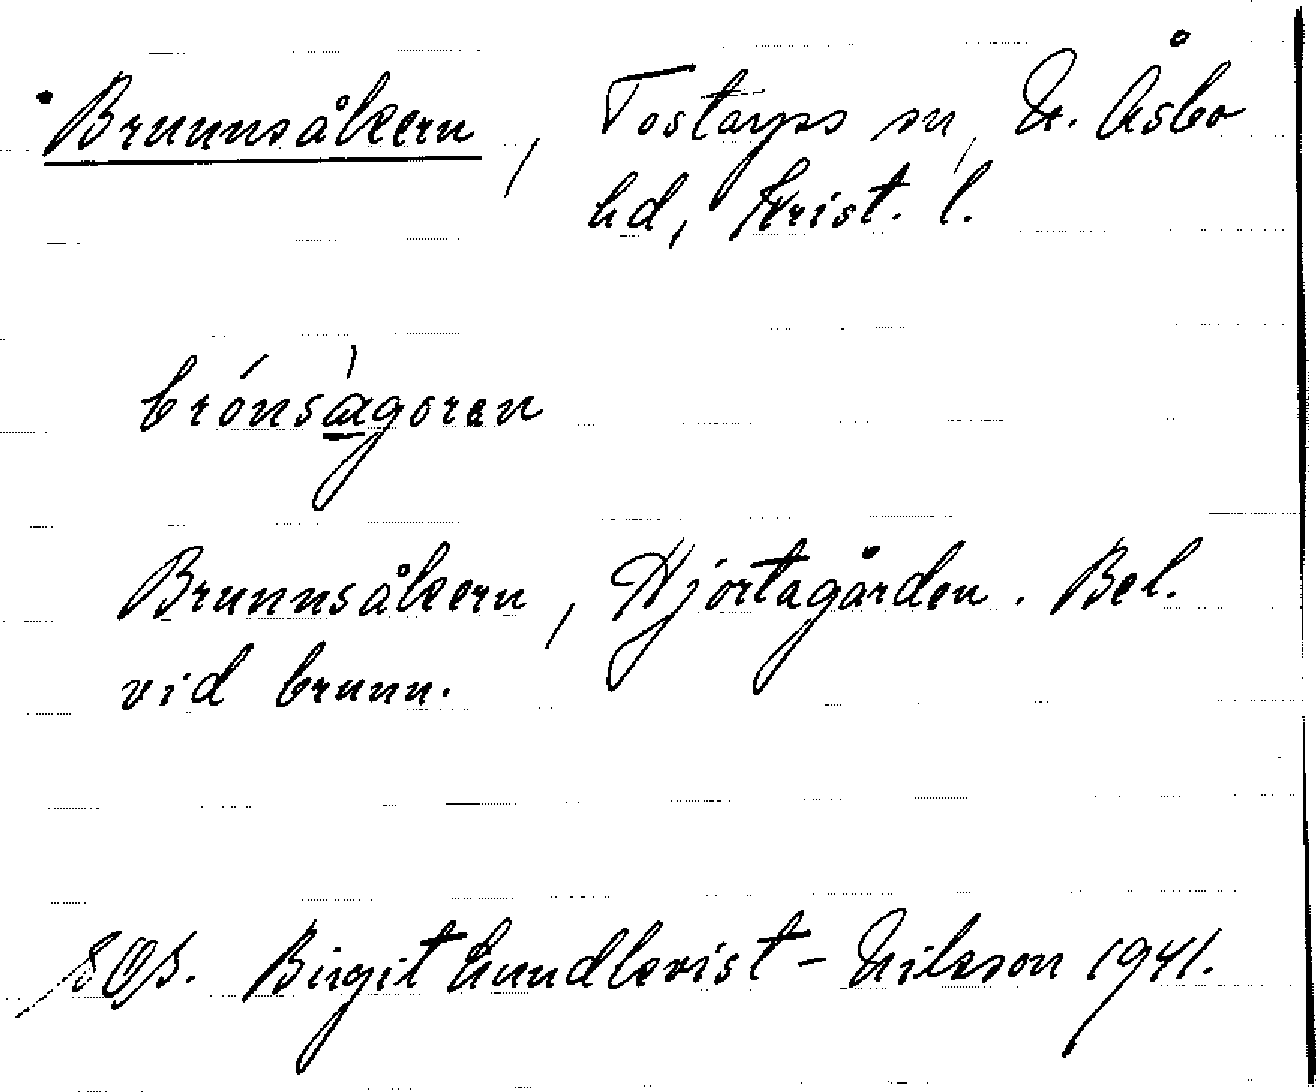 Brunnsåkern, Tostarps sn, N. Åsbo
hd, Krist. l.
brónsà̲goren
Brunnsåkern, Hjortagården. Bel.
vid brunn.
Birgit Lundkvist-Nilsson 1941.